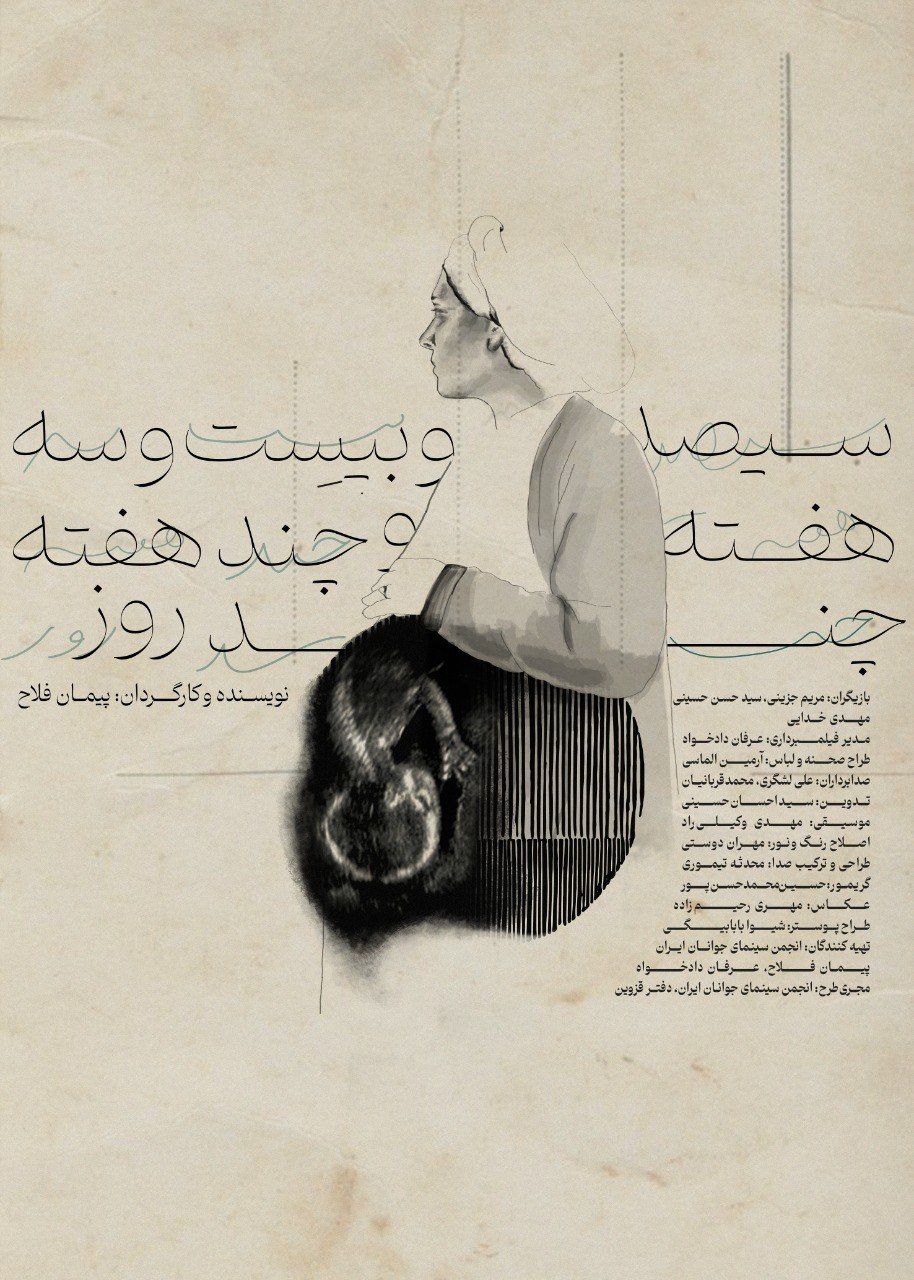 سیصد و بیست و سه
هفته و چند هفته
چنــد روز
نویسنده و کارگردان: پیمان فلاح
بازیگران: مریم جزینی، سید حسن حسینی
مهدی خدایی
مدیر فیلمبرداری: عرفان دادخواه
طراح صحنه و لباس: آرمین الماسی
صدابرداران: علی لشگری، محمد قربانیان
تدوین: سید احسان حسینی
موسیقی: مهدی وکیلی راد
اصلاح رنگ و نور: مهران دوستی
طراحی و ترکیب صدا: محدثه تیموری
گریمور: حسین محمدحسن پور
عکاس: مهری رحیم زاده
طراح پوستر: شیوا بابابیگی
تهیه کنندگان: انجمن سینمای جوانان ایران
پیمان فلاح، عرفان دادخواه
مجری طرح: انجمن سینمای جوانان ایران، دفتر قزوین